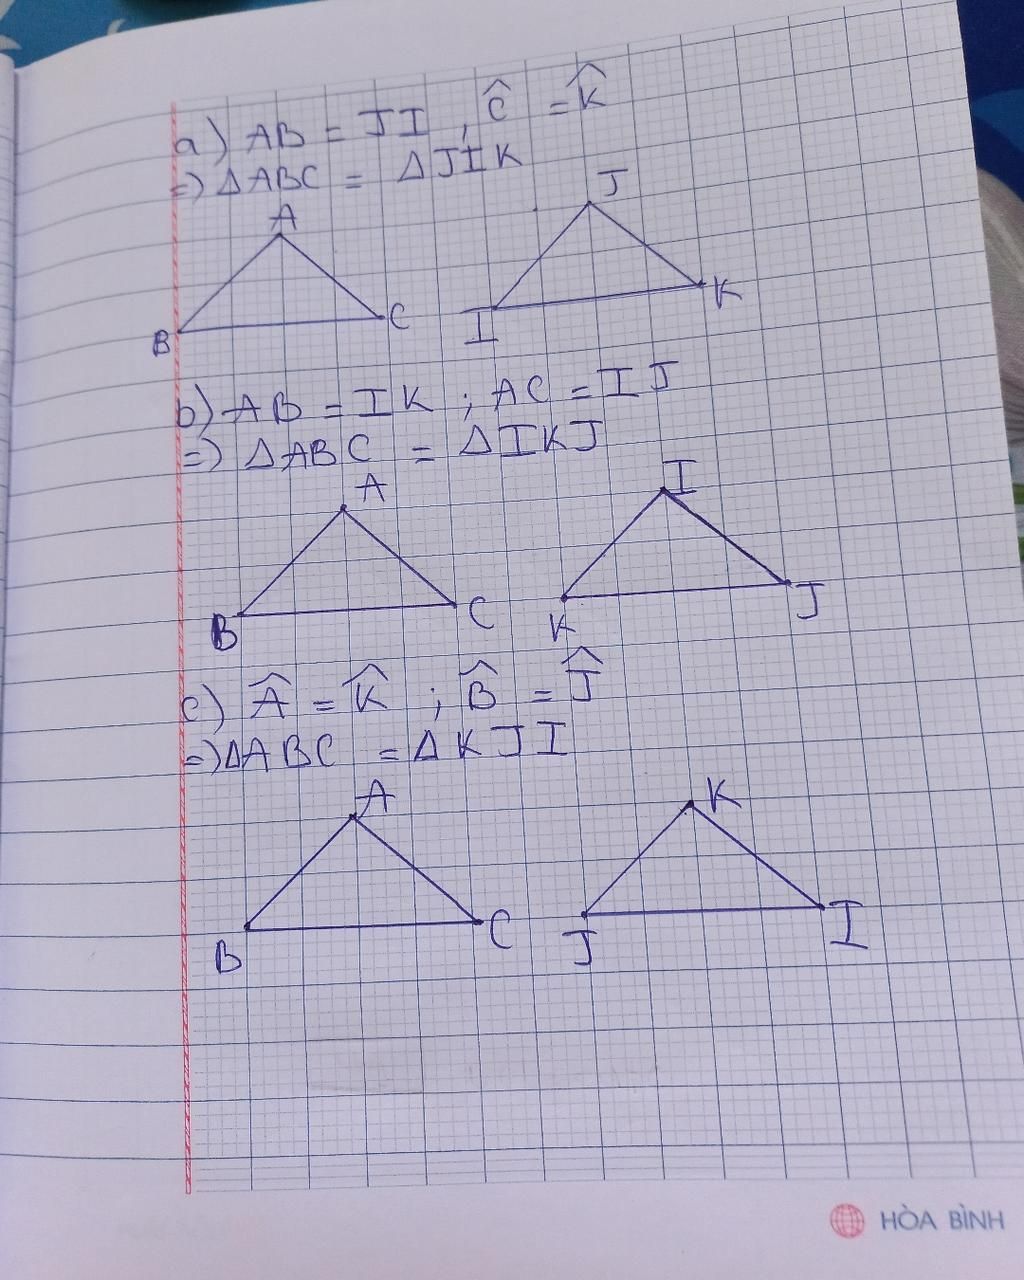 a) AB = JI , Ĉ = K̂
=> ΔABC = ΔJIK
A
J
B
C
I
K
b) AB = IK ; AC = IJ
=> ΔABC = ΔIKJ
A
I
B
C
K
J
c) Â = K̂ ; B̂ = Ĵ
=> ΔABC = ΔKJI
A
K
B
C
J
I
HÒA BÌNH